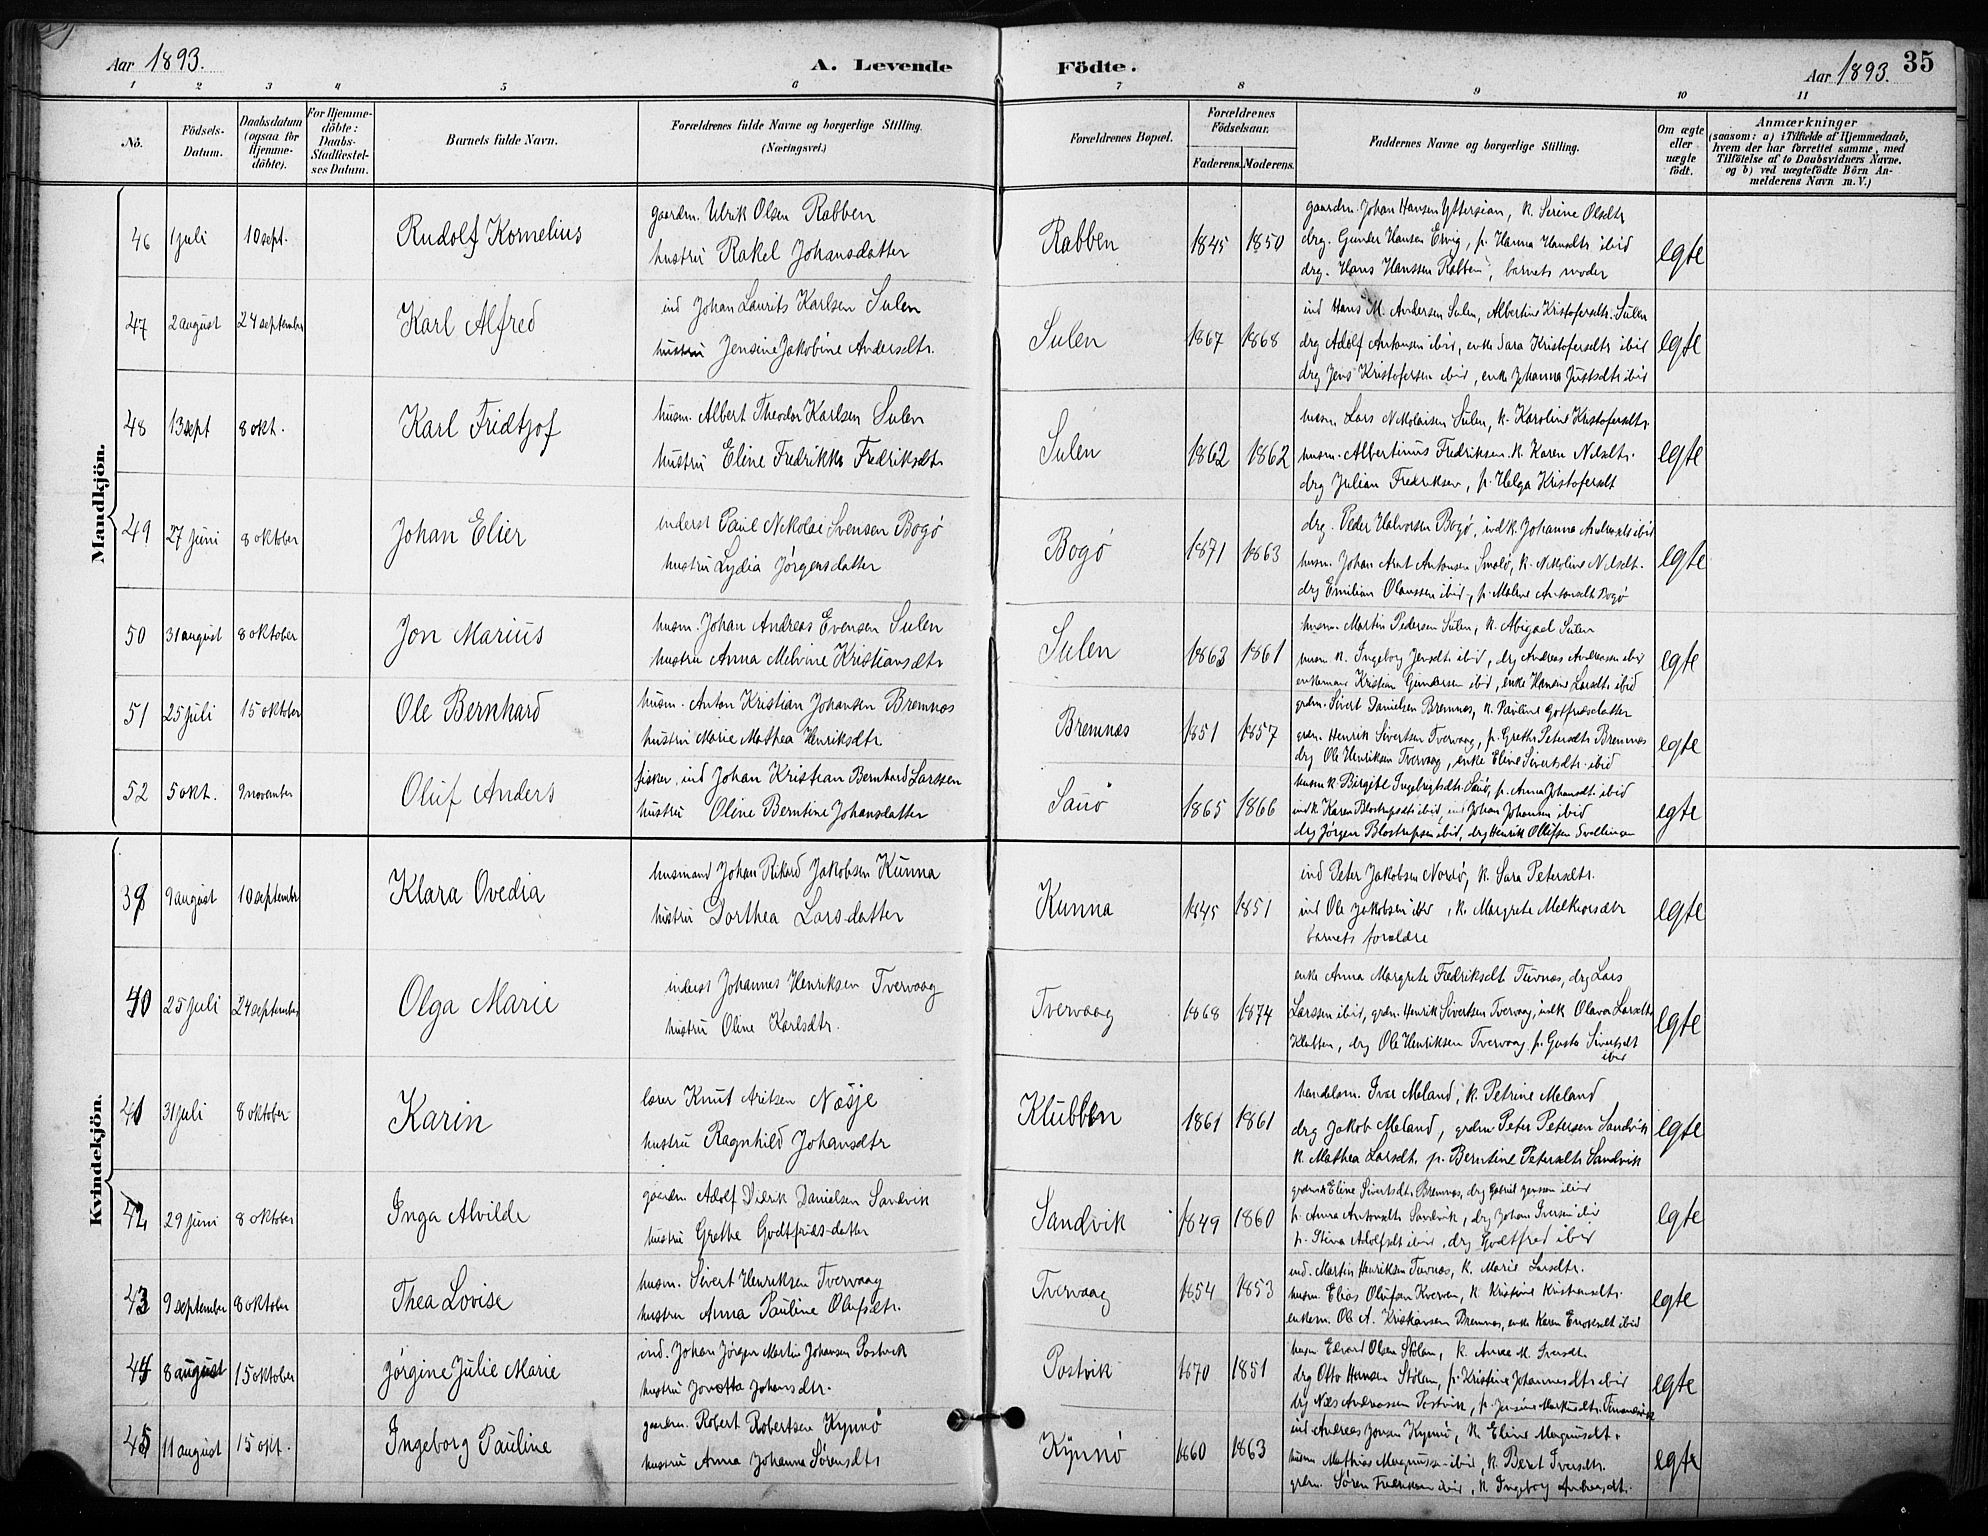 Aar 1893. A. Levende Födte. Aar 1893. 35
1 2 3 4 5 6 7 8 9 10 11
No. Födsels-Datum. Daabsdatum (ogsaa for Hjemme-döbte). For Hjemme-döbte: Daabs-Stadfæstel-ses Datum. Barnets fulde Navn. Forældrenes fulde Navne og borgerlige Stilling. (Næringsvei.) Forældrenes Bopæl. Forældrenes Födselsaar. Faderens. Moderens. Faddernes Navne og borgerlige Stilling. Om ægte eller uægte födt. Anmærkninger (saasom: a) i Tilfælde af Hjemmedaab, hvem der har forrettet samme, med Tilföielse af to Daabsvidners Navne. og b) ved uægtefödte Börn An-melderens Navn m. V.)
Mandkjön.
46 1 juli 10 sept. Rudolf Kornelius gaardm. Ulrik Olsen Rabben
hustru Rakel Johansdatter Rabben 1845 1850 egte
gaardm. Johan Hansen Yttersian, k. Serine Olsdtr
drg. Gunder Hansen Ervig, p. Hanna Hansdtr ibid
drg. Hans Hanssen Rabben, barnets moder
47 2 august 24 september Karl Alfred ind Johan Laurits Karlsen Sulen
hustru Jensine Jakobine Andersdtr. Sulen 1867 1868 egte
ind Hans M. Andersen Sulen, Albertine Kristofersdtr. Sulen
drg Adolf Antonsen ibid, enke Sara Kristofersdtr ibid
drg Jens Kristofersen ibid, enke Johanna Justsdtr ibid
48 13 sept 8 okt. Karl Fridtjof husm. Albert Theodor Karlsen Sulen
hustru Eline Fredrikke Fredriksdtr Sulen 1862 1862 egte
husm. Lars Nikolaisen Sulen, k. Karoline Kristofersdtr.
husm. Albertinus Fredriksen. k. Karen Nilsdtr.
drg Julian Fredriksen, p. Helga Kristofersdt
49 27 juni 8 oktober Johan Elier inderst Paul Nikolai Svensen Bogø
hustru Lydia Jørgensdatter Bogø 1871 1863 egte
drg. Peder Halvorsen Bogø, ind k. Johanna ibid
husm. Johan Arnt Antonsen Smølø, k. Nikoline Nilsdt.
drg Emilian Olaussen ibid, p. Malene Antonsdtr Bogø
50 31 august 8 oktober Jon Marius husm. Johan Andreas Evensen Sulen
hustru Anna Melvine Kristiansdtr Sulen 1863 1861 egte
husm. Martin Pedersen Sulen, k. Abigael Sulen
husm k. Ingeborg Jensdtr ibid, drg Andreas Andreassen ibid
enkemand Kristian Gundersen ibid, enke Hansine Larsdtr ibid
51 25 juli 15 oktober Ole Bernhard husm. Anton Kristian Johansen Bremnæs
hustru Marie Mathea Henriksdtr Bremnæs 1851 1857 egte
grdm. Sivert Danielsen Bremnæs, k. Pauline Gotfriedsdatter
grdm. Henrik Sivertsen Tvervaag, p. Grethe Petersdtr Bremnæs
drg Ole Henriksen Tvervaag, enke Eline Sivertsdtr. ibid
52 5 okt. 9 november Oluf Anders fisker, ind Johan Kristian Bernhard Larssen
hustru Oline Berntine Johansdatter Sauø 1865 1866 egte
husm k. Birgitte Ingebrigtsdtr Sauø, p. Anna Johansdt ibid
ind k Karen ibid, ind Johan Johansen ibid
drg Jørgen ibid, drg Henrik
Kvindekjön.
39 9 august 10 september Klara Ovedia husmand Johan Rikard Jakobsen Kunna
hustru Dorthea Larsdatter Kunna 1845 1851 egte
ind Peter Jakobsen Nordø, k. Sara Petersdtr.
ind Ole Jakobsen ibid, k. Margrete Melkiorsdtr
barnets forældre
40 25 juli 24 september Olga Marie inderst Johannes Henriksen Tvervaag
hustru Oline Karlsdtr. Tvervaag 1868 1874 egte
enke Anna Margrete Fredriksdt Tuvnæs, drg Lars
Larssen ibid, grdm. Henrik Sivertsen Tvervaag, ind k Olava Larsdtr
Klubben, drg Ole Henriksen Tvervaag p. Gusta Sivertsdt
ibid
41 31 juli 8 oktober Karin lærer Knut Aritsen Næsje
hustru Ragnhild Johansdtr Klubben 1861 1861 egte
handelsm. Iver Meland, k. Petrine Meland
drg Jakob Meland, grdm Peter Petersen Sandvik
k. Mathea Larsdt. p. Berntine Petersdtr Sandvik
42 29 juni 8 oktober Inga Alvilde gaardm Adolf Didrik Danielsen Sandvik
hustru Grethe Godtfriedsdatter Sandvik 1849 1860 egte
grdm k Eline Sivertsdtr Bremnæs, drg Gabriel Jensen ibid
p. Anna Antonsdtr Sandvik, drg Johan Iversen ibid
p. Stina Adolfsdt ibid, drg Godtfred ibid
43 9 september 8 oktober Thea Lovise husm. Sivert Henriksen Tvervaag
hustru Anna Pauline Olufsdtr. Tvervaag 1854 1853 egte
ind. Martin Henriksen Tuvnæs, k. Marie Larsdtr.
husm. Elias Olufsen Kverven, k. Kristine Kristensdtr.
enkem. Ole A. Kristiansen Bremnæs, enke Karen ibid
44 8 august 15 oktober Jørgine Julie Marie ind. Johan Jørgen Martin Johansen Postvik
hustru Jonetta Johansdtr. Postvik 1870 1851 egte
husm Edvard Olsen Stølan, k. Anne M. Iversdt.
drg Otto Hansen Stølan, p. Kristine Johannesdtr ibid
drg Næs Andreassen Postvik, p. Jensine Markusdtr.
45 11 august 15 okt. Ingeborg Pauline gaardm. Robert Robertsen Kynnø
hustru Anna Johanna Sørensdtr Kynnø 1860 1863 egte
ind Andreas Jonsen Kynnø, k. Eline Magnusdtr.
husm Mathias Magnussen ibid, k. Beret Iversdtr.
grdm. Søren Fredriksen ibid, k. Ingeborg Andersdtr.